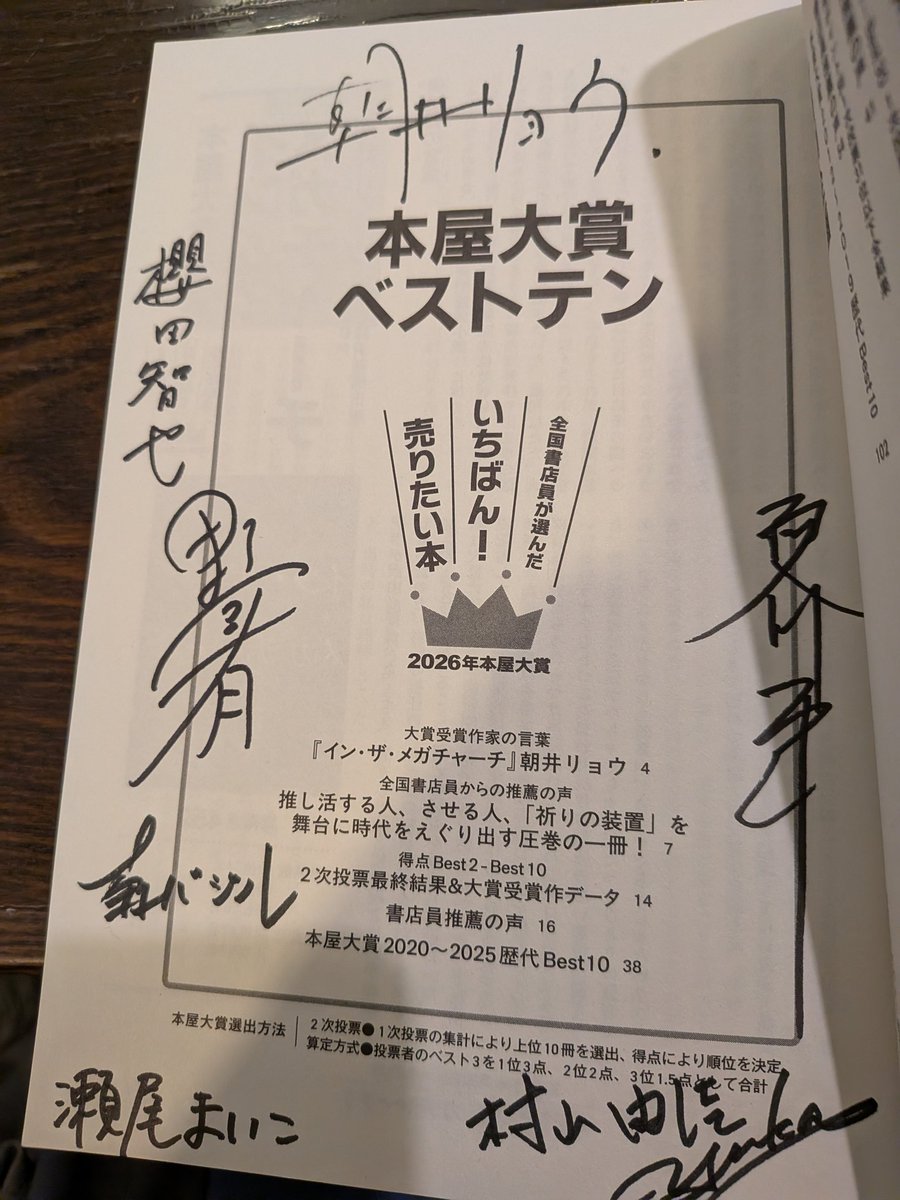 朝井リョウ
本屋大賞
ベストテン
櫻田智也
全国書店員が選んだ
いちばん!
売りたい本
2026年本屋大賞
大賞受賞作家の言葉
『イン・ザ・メガチャーチ』朝井リョウ 4
全国書店員からの推薦の声
推し活する人、させる人、「祈りの装置」を
舞台に時代をえぐり出す圧巻の一冊! 7
得点Best2-Best10
2次投票最終結果&大賞受賞作データ 14
書店員推薦の声 16
本屋大賞2020〜2025歴代Best10 38
本屋大賞選出方法
2次投票●1次投票の集計により上位10冊を選出、得点により順位を決定
算定方式●投票者のベスト3を1位3点、2位2点、3位1.5点として合計
瀬尾まいこ
村山由佳
Yuka
102